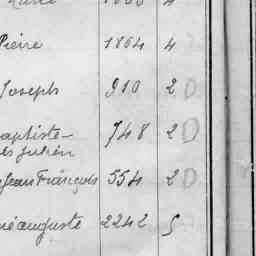 Pierre 1864 4
Joseph 910 2 D
aptiste- 748 2 D
es Julien
Jean François 554 2 D
né auguste 2242 5